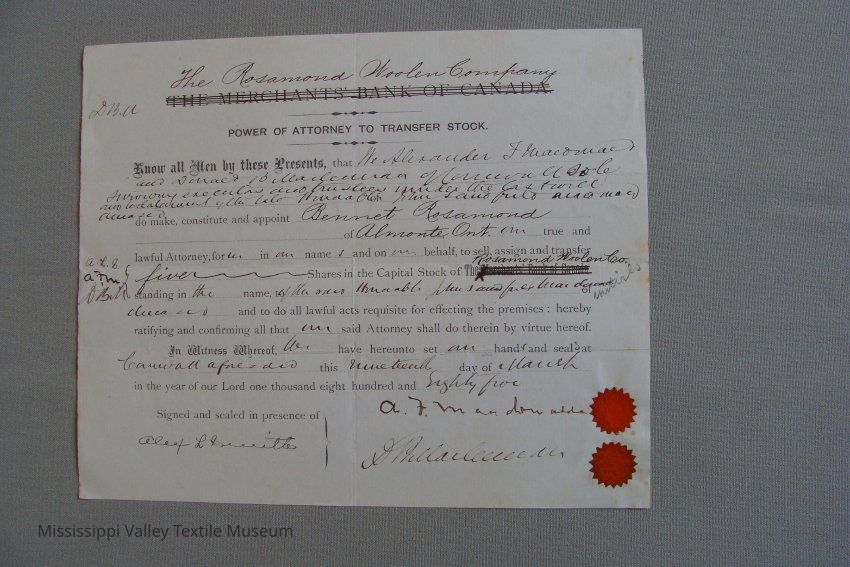 The Rosamond Woolen Company
THE MERCHANTS' BANK OF CANADA.
D B M
POWER OF ATTORNEY TO TRANSFER STOCK.
Know all Men by these Presents, that We Alexander F Macdonald
and Donald B Maclennan of Cornwall Sole
Surviving executors and trustees under the last will
and testament of the late Honorable John Sandfield Macdonald
deceased
do make, constitute and appoint Bennet Rosamond
of Almonte Ont our true and
lawful Attorney, for us in our names and on our behalf, to sell, assign and transfer
Rosamond Woolen Co.
A. L. S.
A. F. M.
five Shares in the Capital Stock of The
D B M
standing in the name, of the said Honorable John Sandfield Macdonald of
deceased and to do all lawful acts requisite for effecting the premises: hereby
ratifying and confirming all that our said Attorney shall do therein by virtue hereof.
In Witness Whereof, We have hereunto set our hands and seals at
Cornwall aforesaid this Nineteenth day of March
in the year of our Lord one thousand eight hundred and Eighty five
Signed and sealed in presence of
A. F. Macdonald
Alex L
D B Maclennan
Mississippi Valley Textile Museum